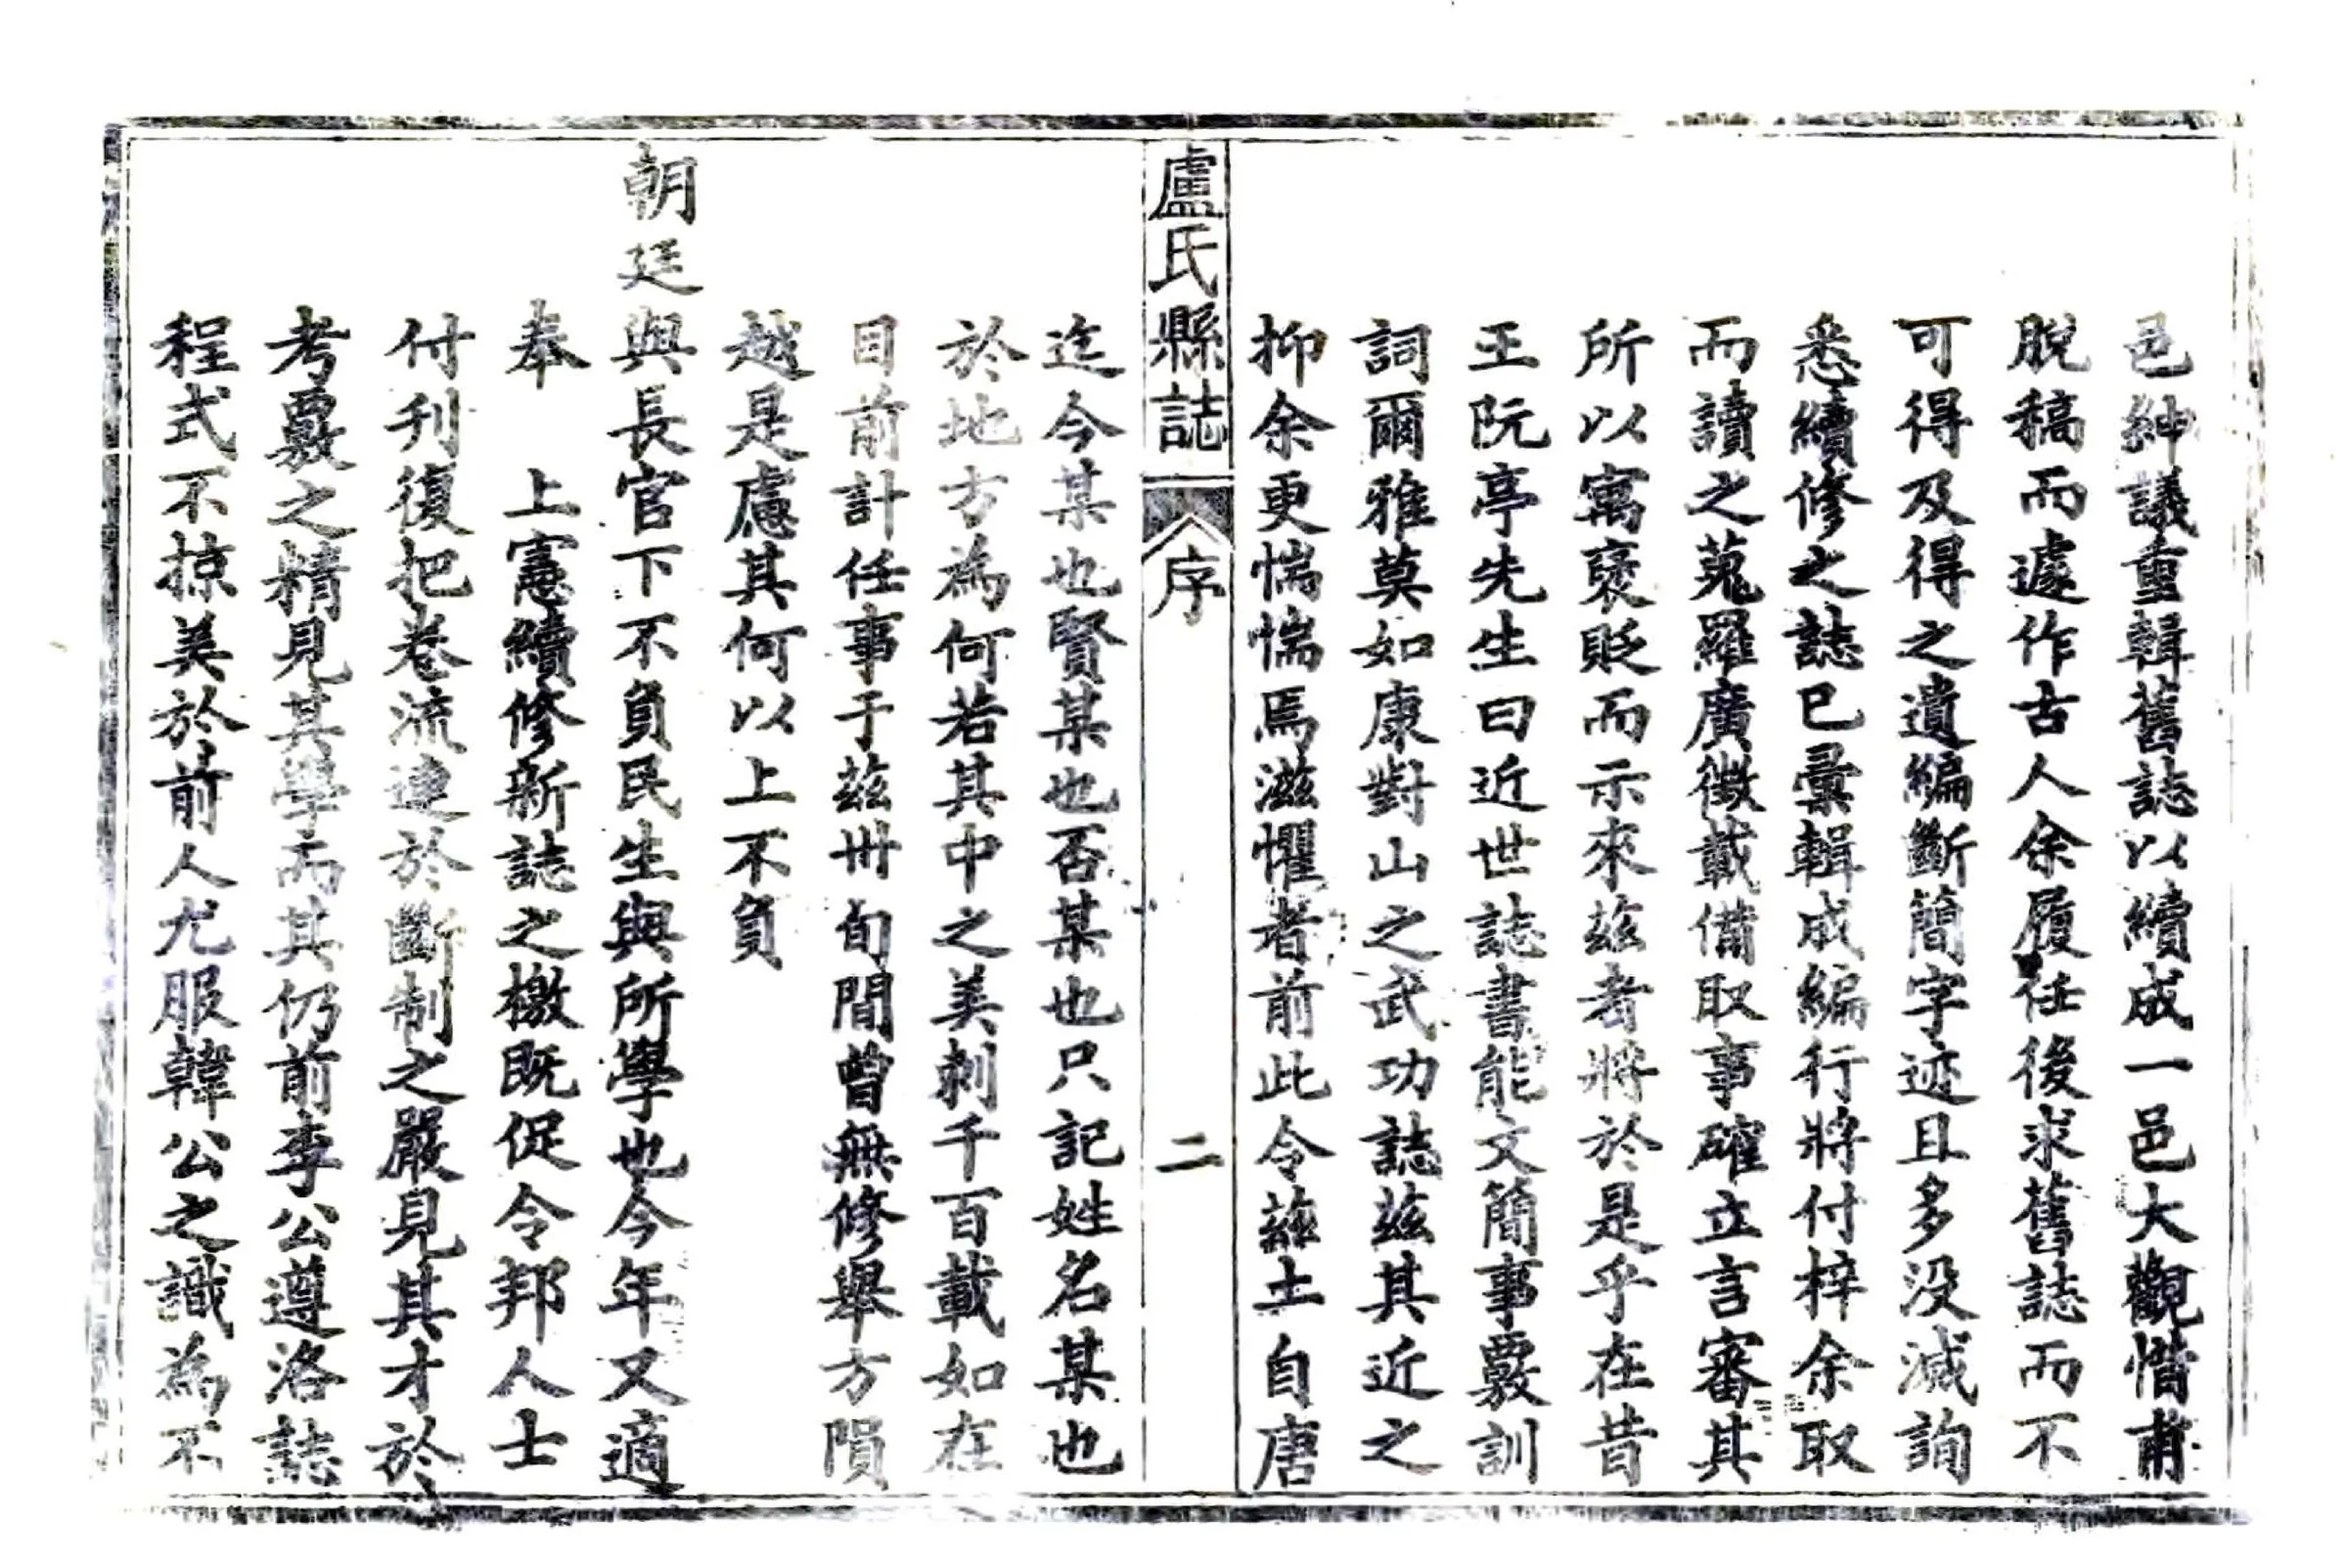 邑紳議重輯舊誌以續成一邑大觀惜甫
脫稿而遽作古人余履任後求舊誌而不
可得及得之遺編斷簡字迹且多没滅詢
悉續修之誌已彙輯成編行將付梓余取
而讀之蒐羅廣徵載備取事確立言審其
所以寓褒貶而示來茲者將於是乎在昔
王阮亭先生曰近世誌書能文簡事覈訓
詞爾雅莫如康對山之武功誌茲其近之
抑余更惴惴焉滋懼者前此令茲土自唐
盧氏縣誌
序
二
迄今某也賢某也否某也只記姓名某也
於地方為何若其中之美刺千百載如在
目前計任事于茲卅旬間曾無修舉方隕
越是慮其何以上不負
朝廷與長官下不負民生與所學也今年又適
奉　上憲續修新誌之檄既促令邦人士
付刊復把卷流連於斷制之嚴見其才於
考覈之精見其學而其仍前李公遵洛誌
程式不掠美於前人尤服韓公之識為不